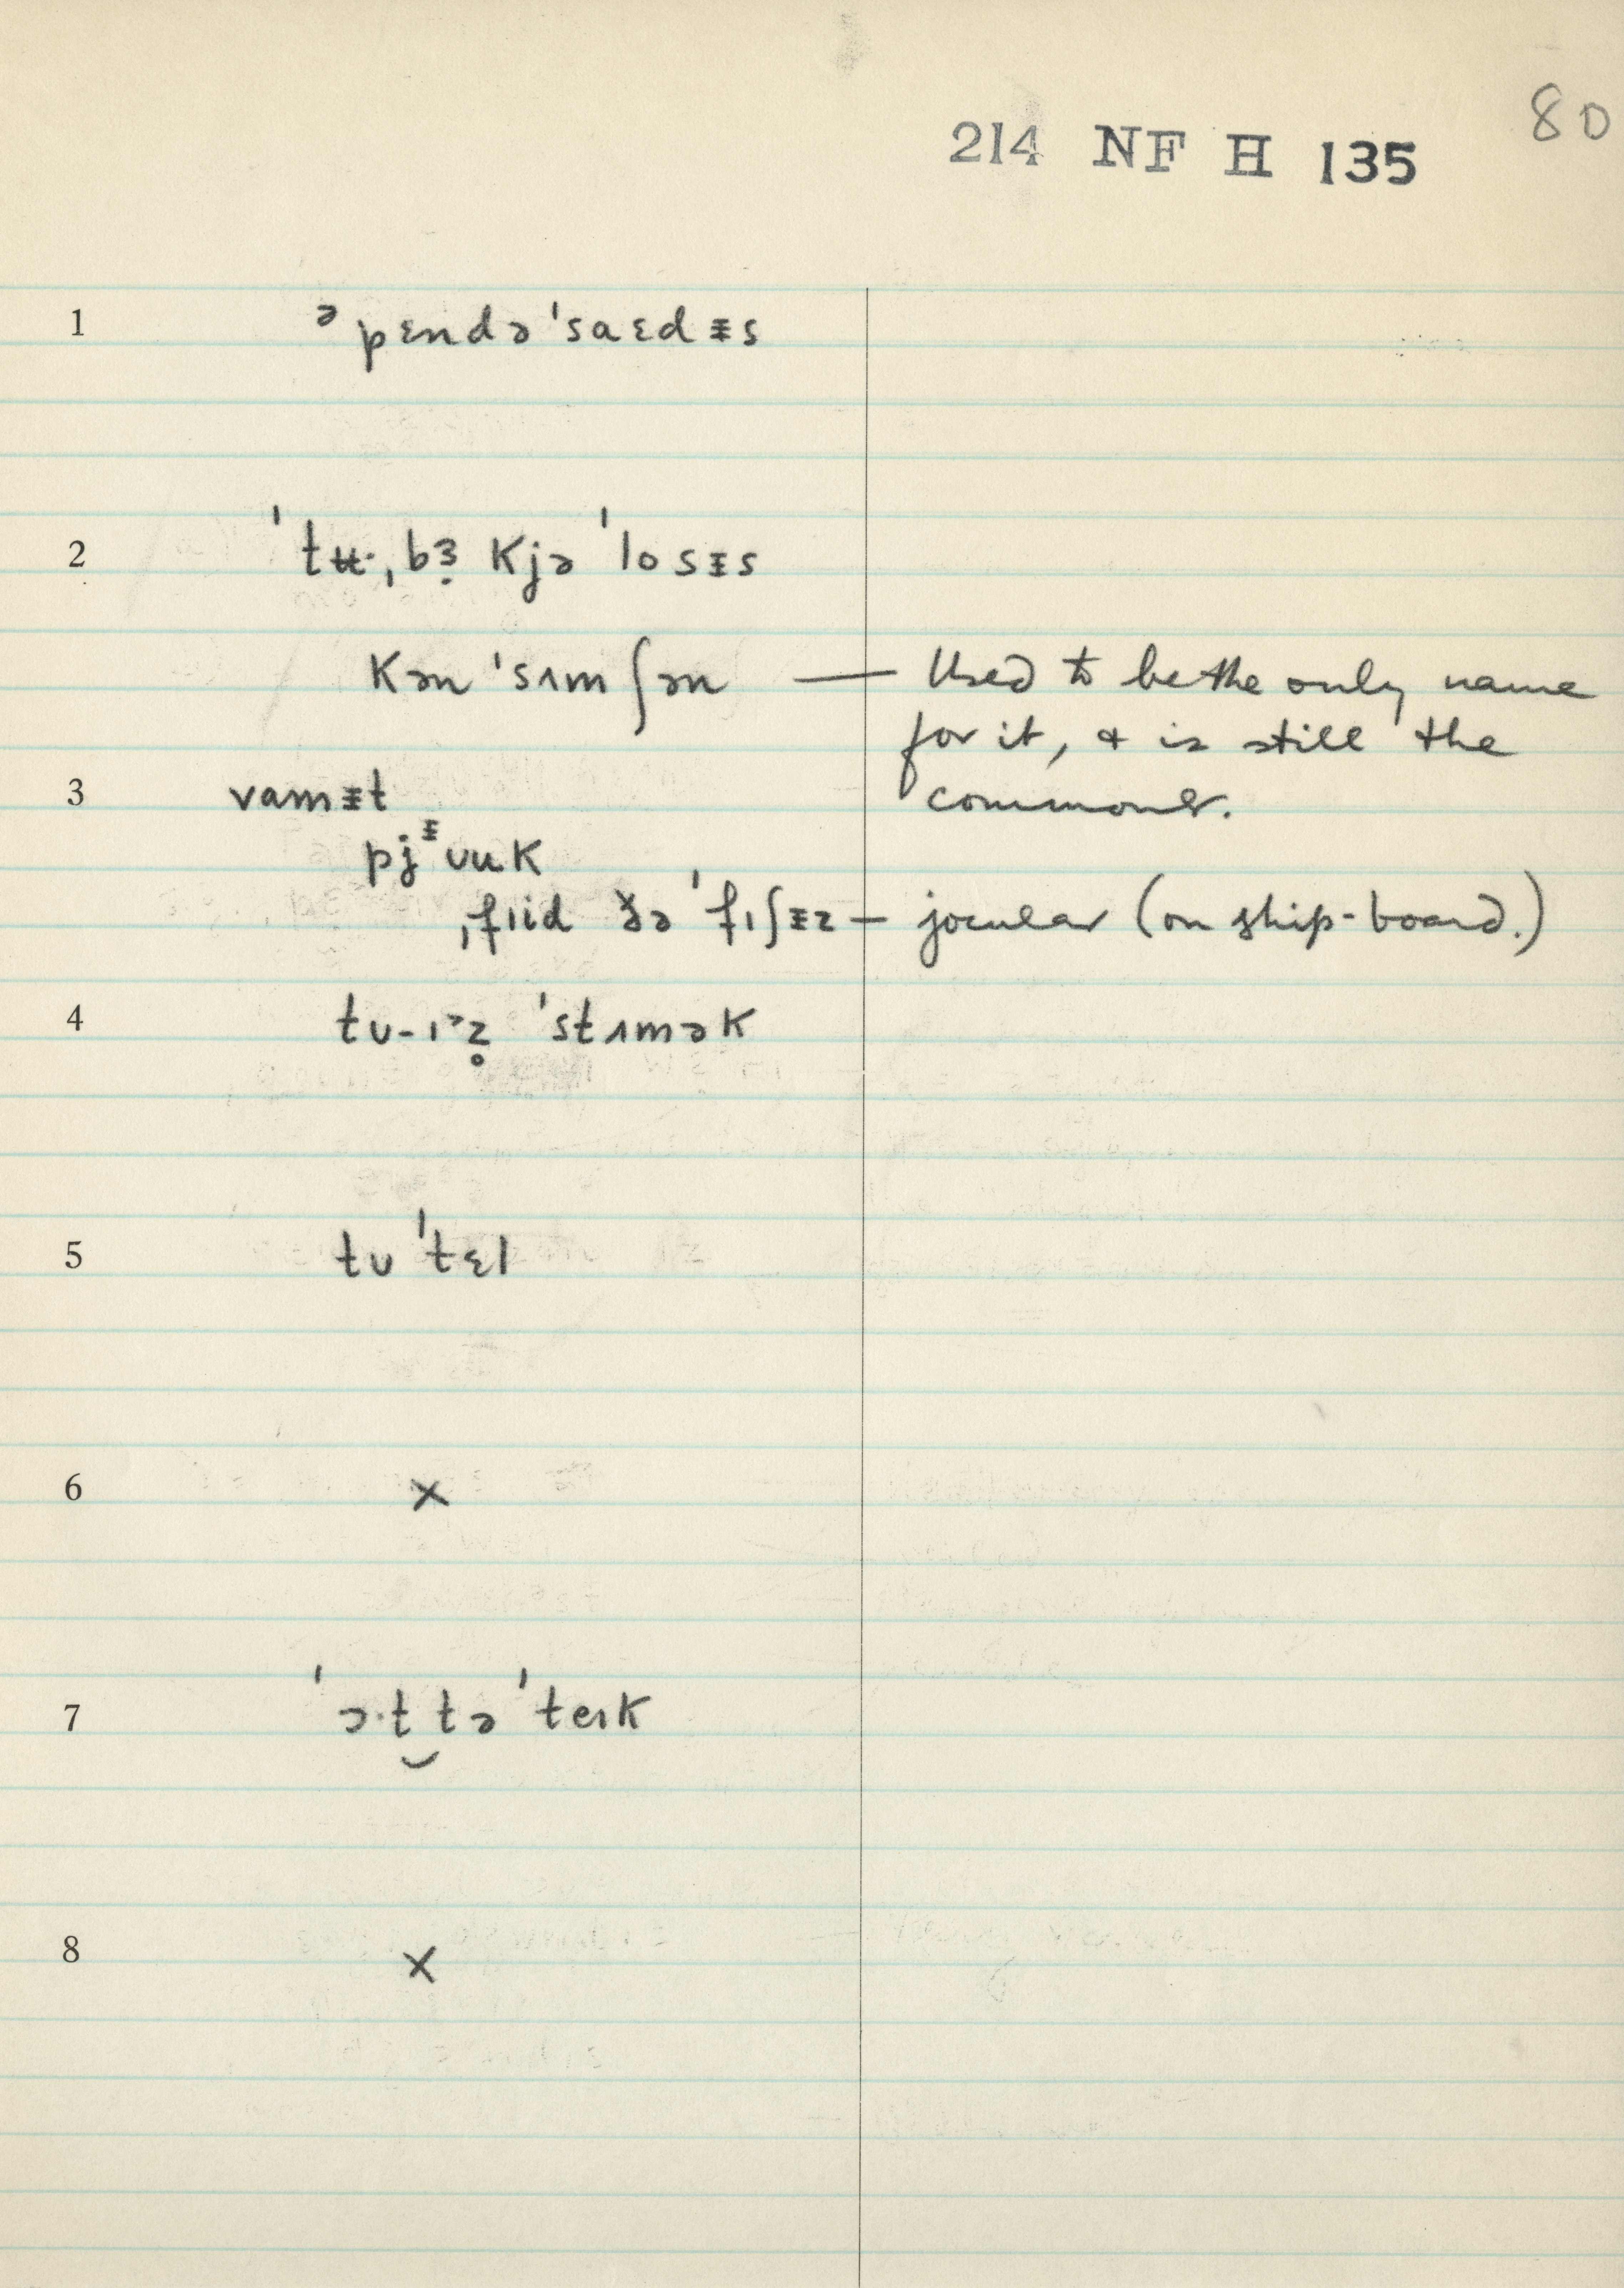 80
214 NF H 135
1 ᵊpɛndə'saɛdᵻs
2 'tʉ·ˌbɜ̣kjə'losᵻs
kən'sʌmʃən — Used to be the only name
for it, & is still the
3 vamᵻt commoner.
pjᵻuuk
ˌfiid ðə 'fɪʃᵻz — jocular (on ship-board.)
4 tʊ-ɪᵊz̥ 'stʌmək
5 tʊ 'tɛl
6 ×
7 'ɔ·t̮ tə 'teɪk
8 ×